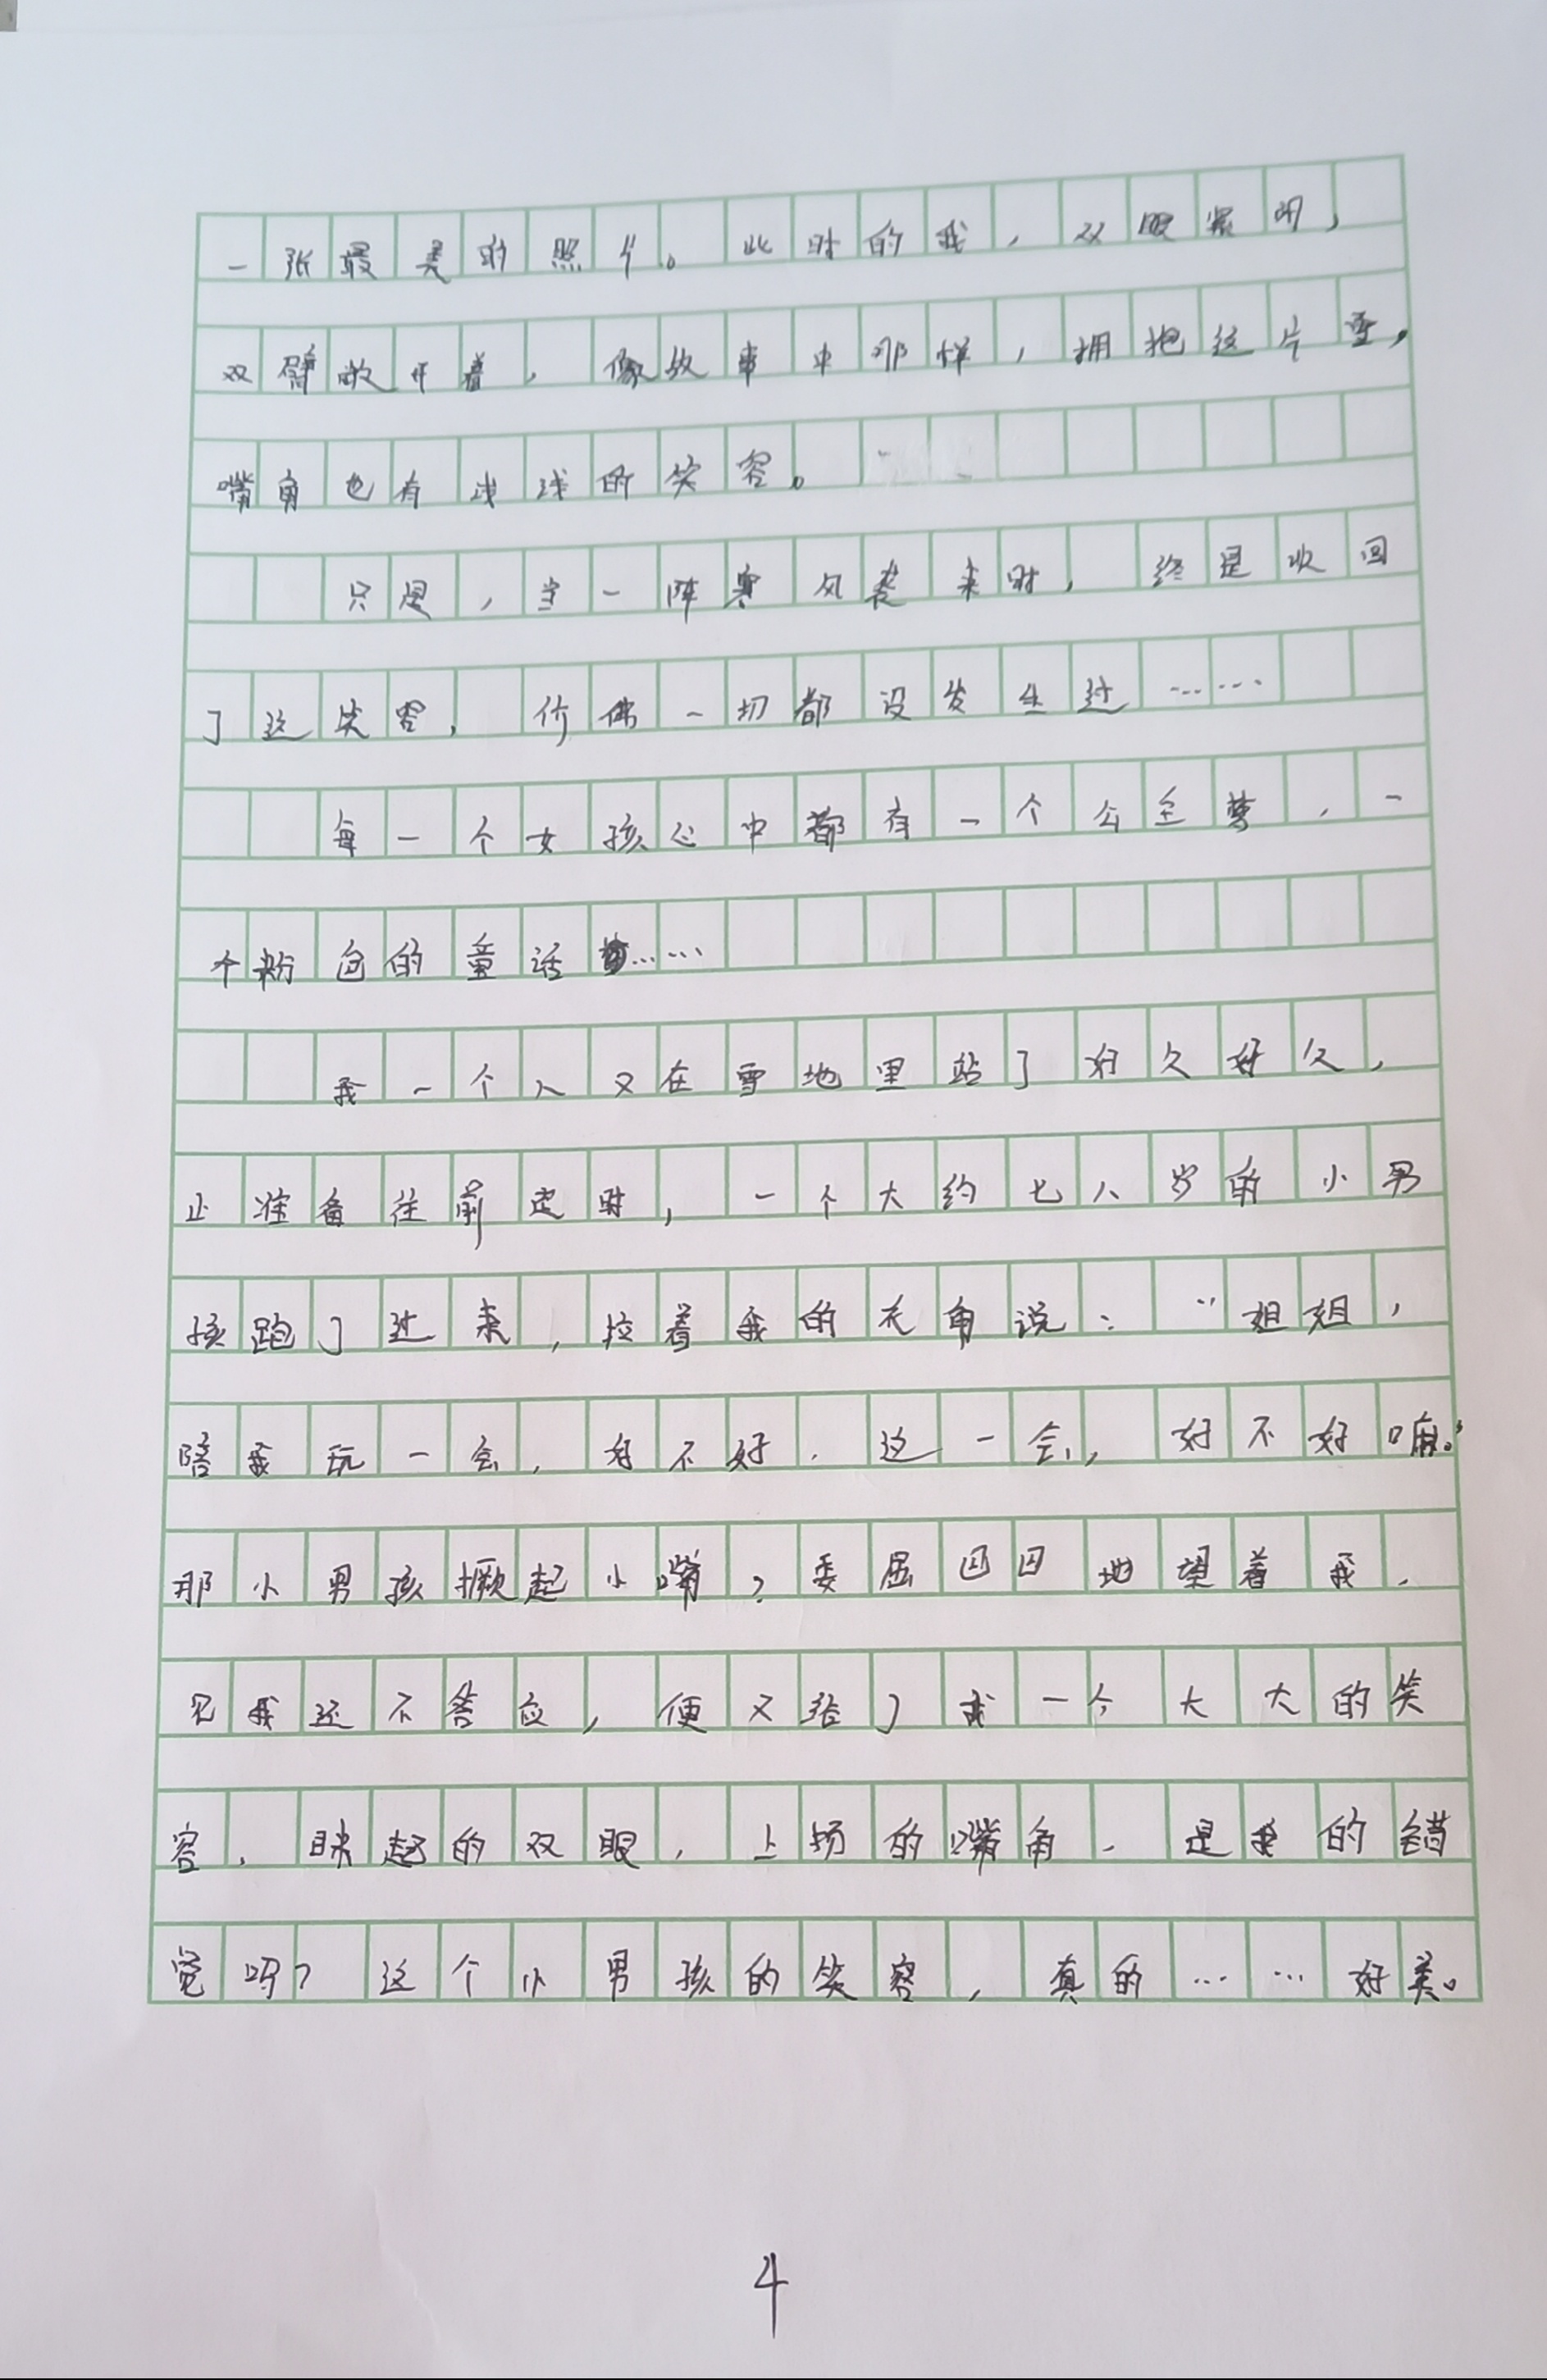 一张最美的照片。此时的我，双眼紧闭，
双臂敞开着，像故事中那样，拥抱这片雪，
嘴角也有浅浅的笑容。
只是，当一阵寒风袭来时，终是吹回
了这笑容，仿佛一切都没发生过……
每一个女孩心中都有一个公主梦，一
个粉色的童话梦……
我一个人又在雪地里站了好久好久，
正准备往前走时，一个大约七八岁的小男
孩跑了过来，拉着我的衣角说：“姐姐，
陪我玩一会，好不好，这一会，好不好嘛。”
那小男孩撅起小嘴，委屈巴巴地望着我，
见我还不答应，便又给了我一个大大的笑
容，眯起的双眼，上扬的嘴角，是我的错
觉吗？这个小男孩的笑容，真的……好美。
4